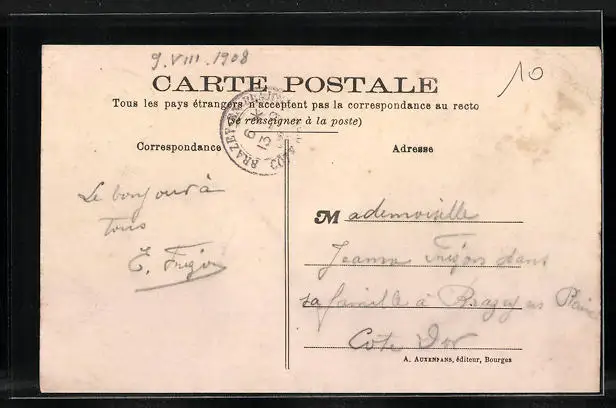 9.VIII.1908
10
CARTE POSTALE
Tous les pays étrangers n'acceptent pas la correspondance au recto
(se renseigner à la poste)
BRAZEY-EN-PLAINE
Correspondance
Le bonjour à
tous
E. Frigon
Adresse
Mademoiselle
Jeanne Frigon dans
sa famille à Brazey en Plaine
Côte D'or
A. AUXENFANS, éditeur, Bourges